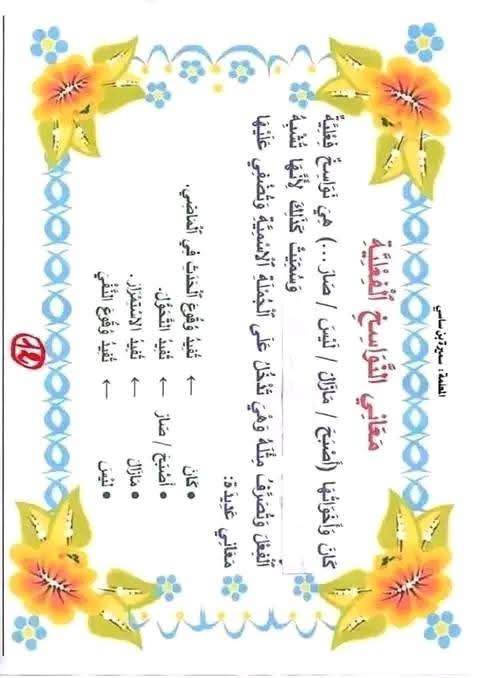 المعلمة : سميرة بن ساسي
مَعَانِي النَّوَاسِخِ الْفِعْلِيَّةِ
كَانَ وَأَخَوَاتُهَا (أَصْبَحَ / مَازَالَ / لَيْسَ / صَارَ ...) هِيَ نَوَاسِخٌ فِعْلِيَّةٌ
وَسُمِّيَتْ كَذَلِكَ لِأَنَّهَا تُشْبِهُ
الْفِعْلَ وَتُصَرَّفُ مِثْلَهُ وَهْيَ تَدْخُلُ عَلَى الْجُمْلَةِ الاِسْمِيَّةِ وَتُضْفِي عَلَيْهَا
مَعَانِي عَدِيدَة:
• كَانَ ← تُفِيدُ وُقُوعَ الْحَدَثِ فِي الْمَاضِي.
• أَصْبَحَ / صَارَ ← تُفِيدُ التَّحَوُّلَ.
• مَازَالَ ← تُفِيدُ الاِسْتِمْرَارَ.
• لَيْسَ ← تُفِيدُ وُقُوعَ النَّفْيِ